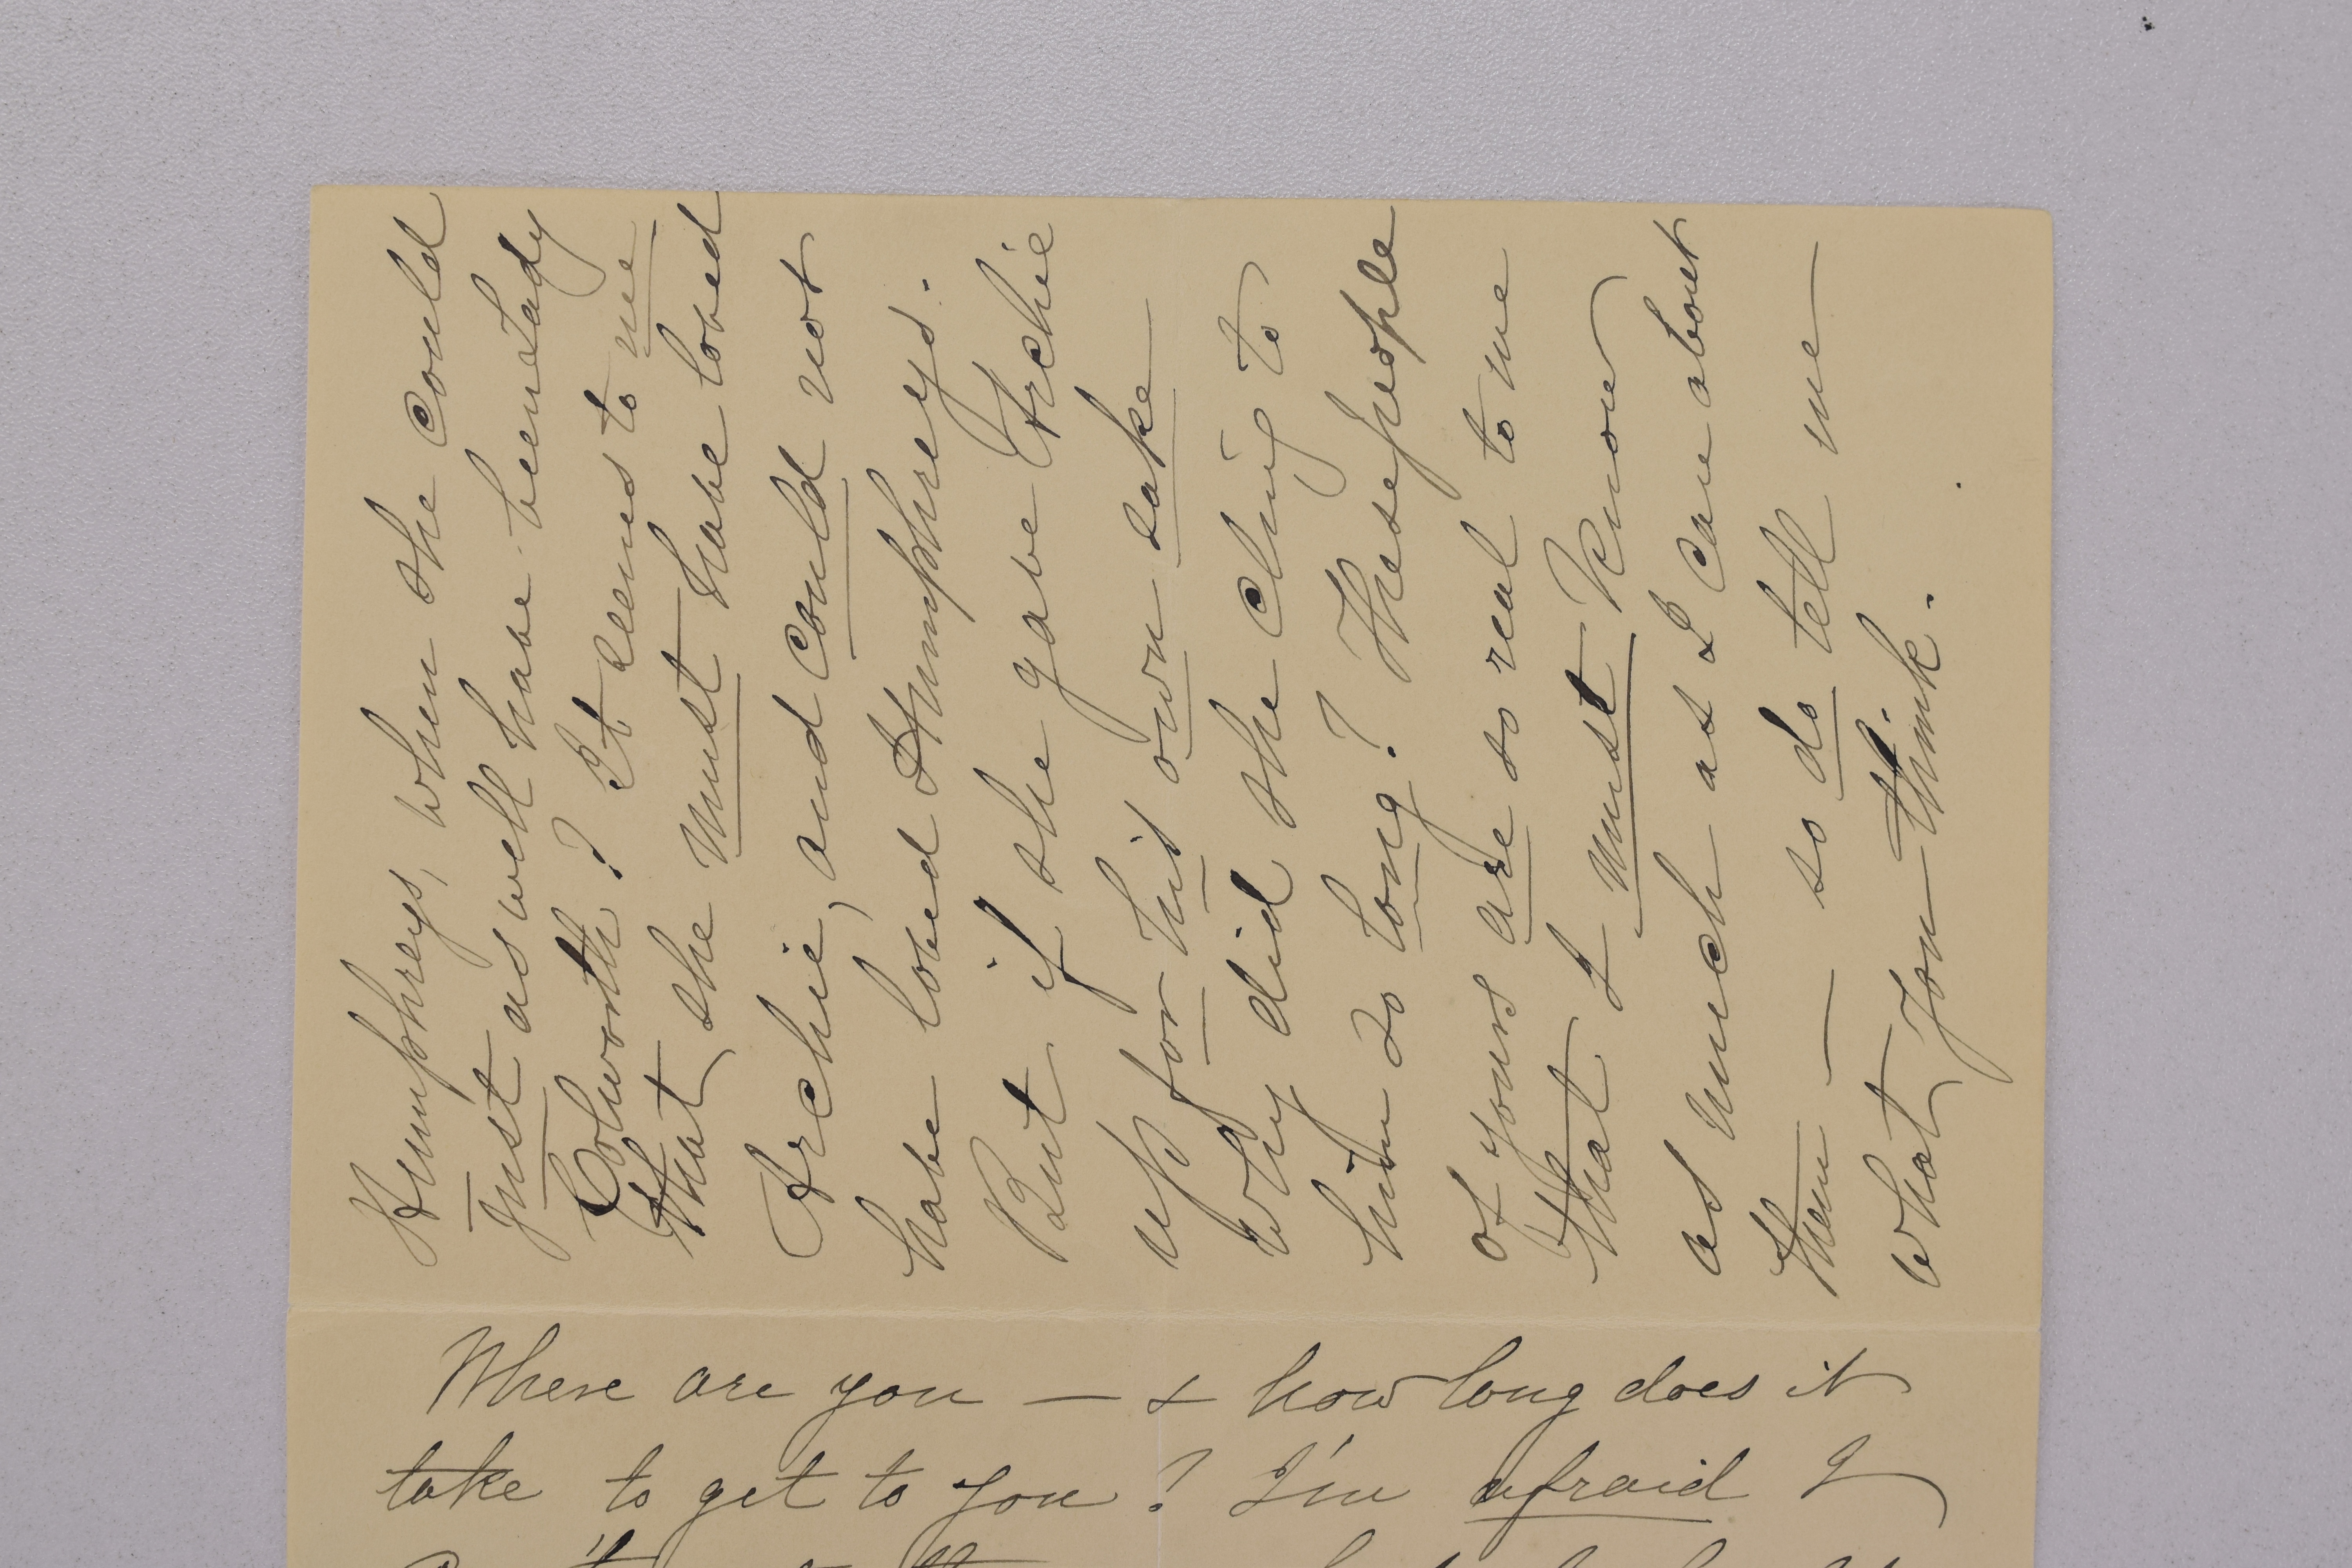 Humphreys, when she could
just as well have been Lady
Colworth? It seems to me
that she must have loved
Archie, and could not
have loved Humphreys.
But if she gave Archie
up for his own sake
why did she cling to
him so long? These people
of yours are so real to me
that I must know
as much as I can about
them — so do tell me
what you think.
Where are you — & how long does it
take to get to you? I'm afraid I